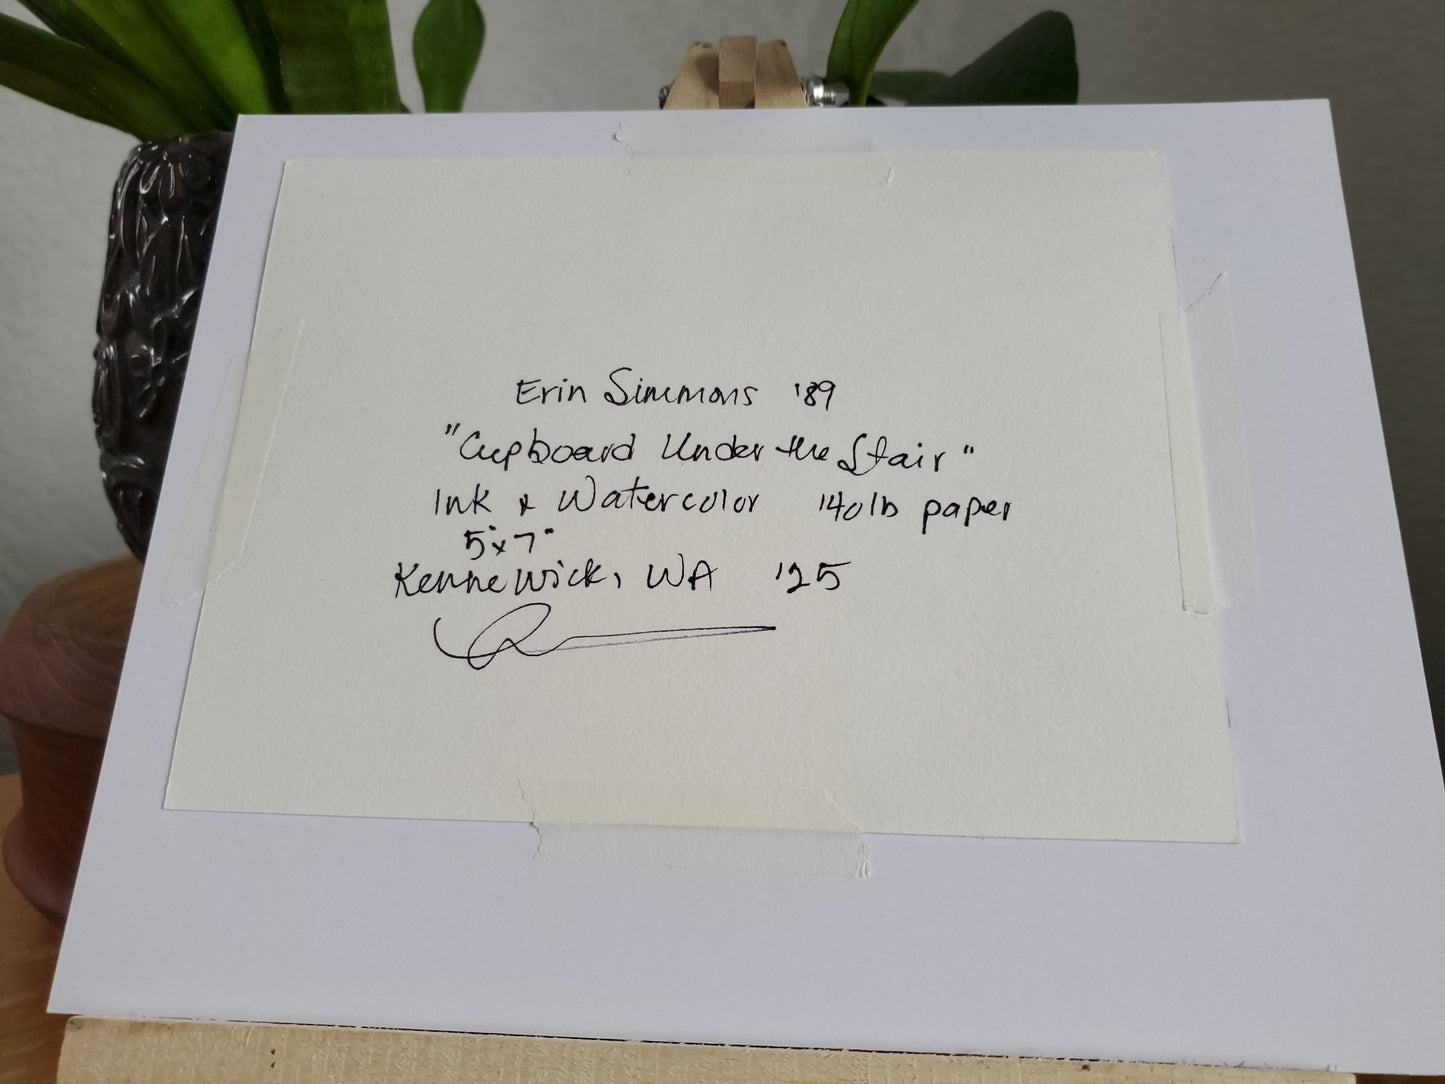 Erin Simmons '89
"Cupboard Under the Stair"
Ink & Watercolor 140lb paper
5"x7"
Kennewick, WA '25